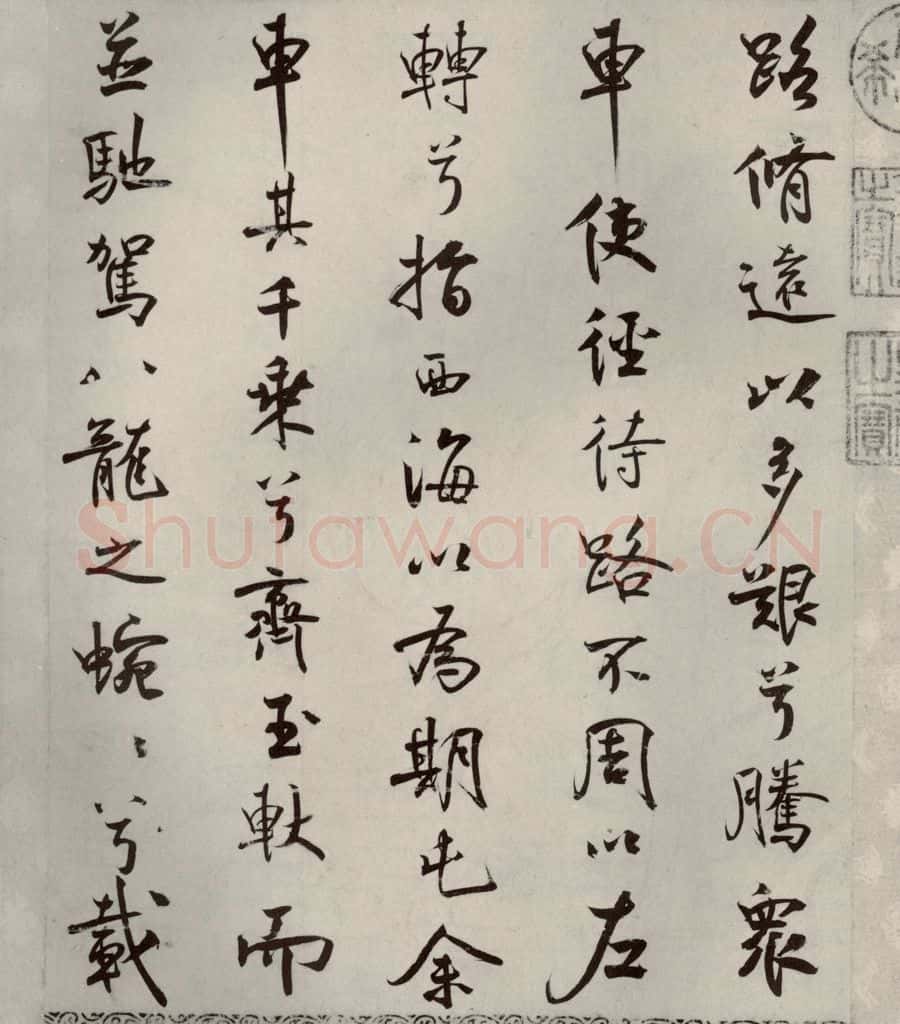 路脩遠以多艱兮騰衆
車使徑待路不周以左
轉兮指西海以為期屯余
車其千乗兮齊玉軑而
並馳駕八龍之蜿〻兮載
Shufawang.CN
希
之寶
之寶